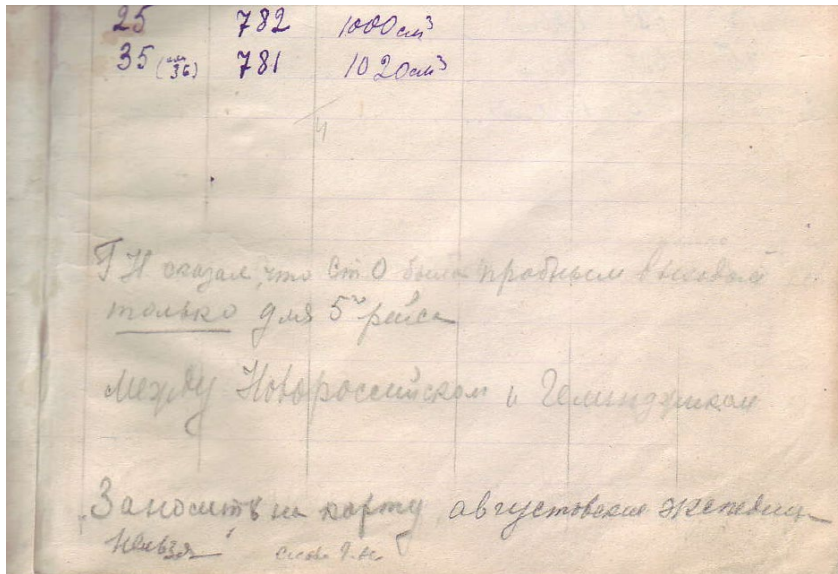 25 782 1000 см³
35 (или 36) 781 1020 см³
ГН сказал, что Ст 0 была пробным
только для 5го рейса
между Новороссийском и Геленджиком
Заносить на карту августовские экспедиц
нельзя